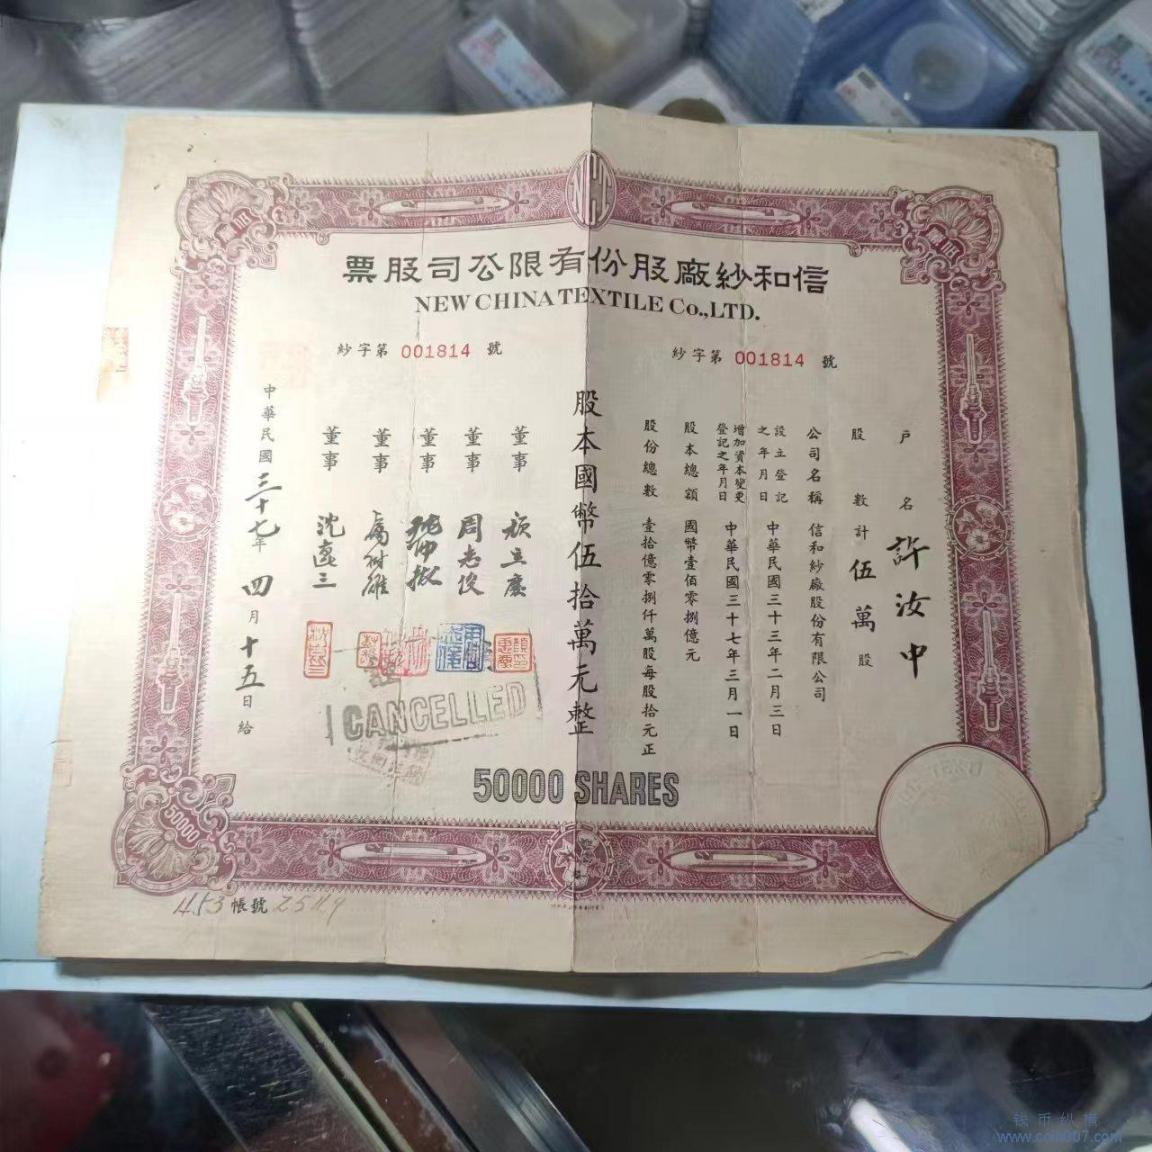 信和紗廠股份有限公司股票
NEW CHINA TEXTILE Co.,LTD.
紗字第 001814 號
紗字第 001814 號
戶名 許汝中
股數計伍萬股
公司名稱 信和紗廠股份有限公司
設立登記之年月日 中華民國三十三年二月三日
增加資本變更登記之年月日 中華民國三十七年三月一日
股本總額 國幣壹佰零捌億元
股份總數 壹拾億零捌仟萬股每股拾元正
股本國幣伍拾萬元整
董事
董事 周志俊
董事
董事
董事
中華民國三十七年四月十五日給
CANCELLED
50000 SHARES
50000
453 帳號 2549
钱币纵横
www.coin007.com